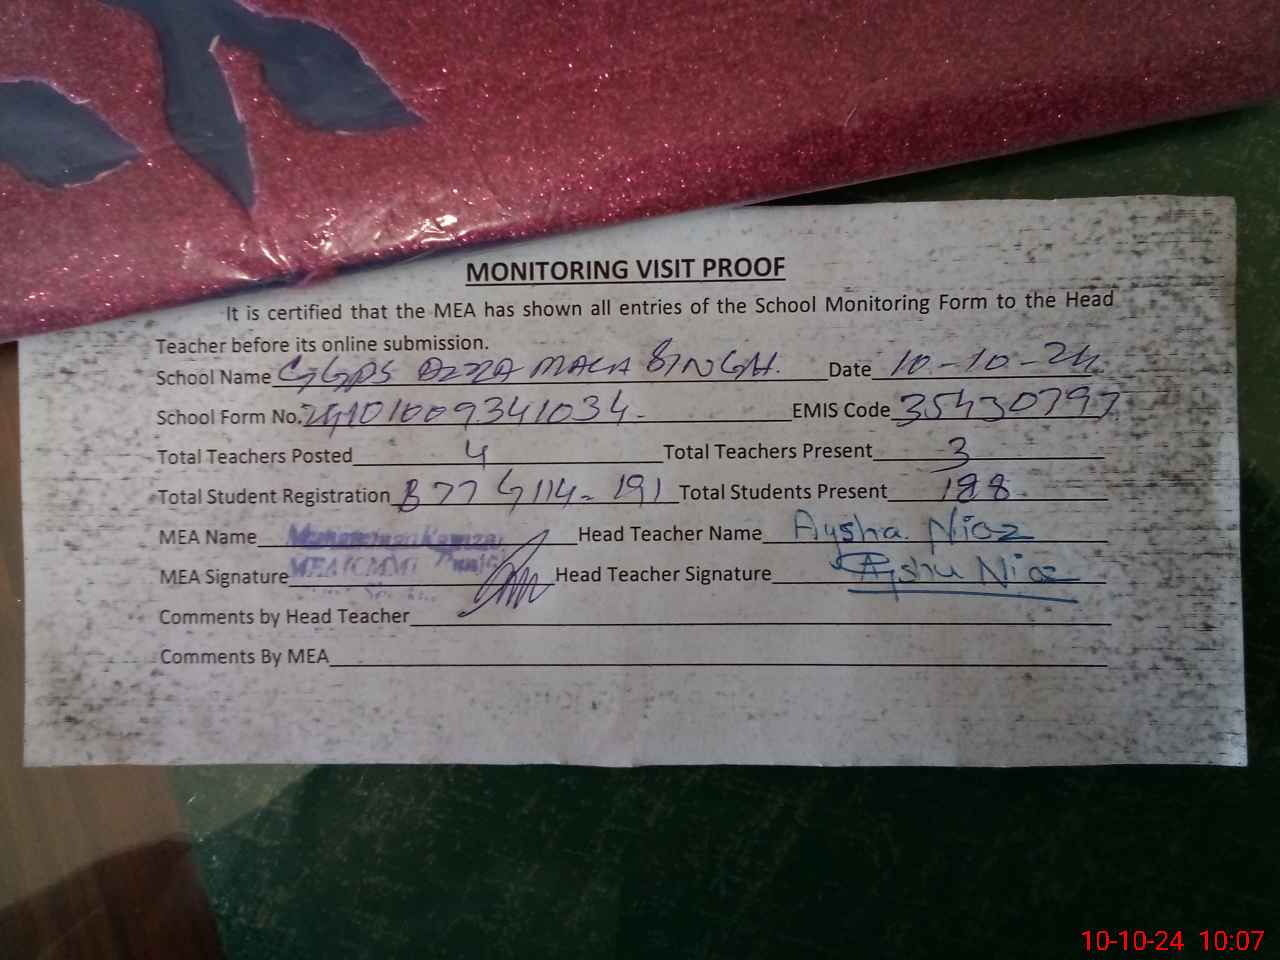 MONITORING VISIT PROOF
It is certified that the MEA has shown all entries of the School Monitoring Form to the Head
Teacher before its online submission.
School Name GGPS MALA SINGH. Date 10-10-24
School Form No. 34101009341034. EMIS Code 35430797
Total Teachers Posted 4 Total Teachers Present 3
Total Student Registration B 77 G 114- 191 Total Students Present 188
MEA Name Head Teacher Name Aysha Niaz
MEA Signature MEA (CMM) Head Teacher Signature Aysha Niaz
Comments by Head Teacher
Comments By MEA
10-10-24 10:07